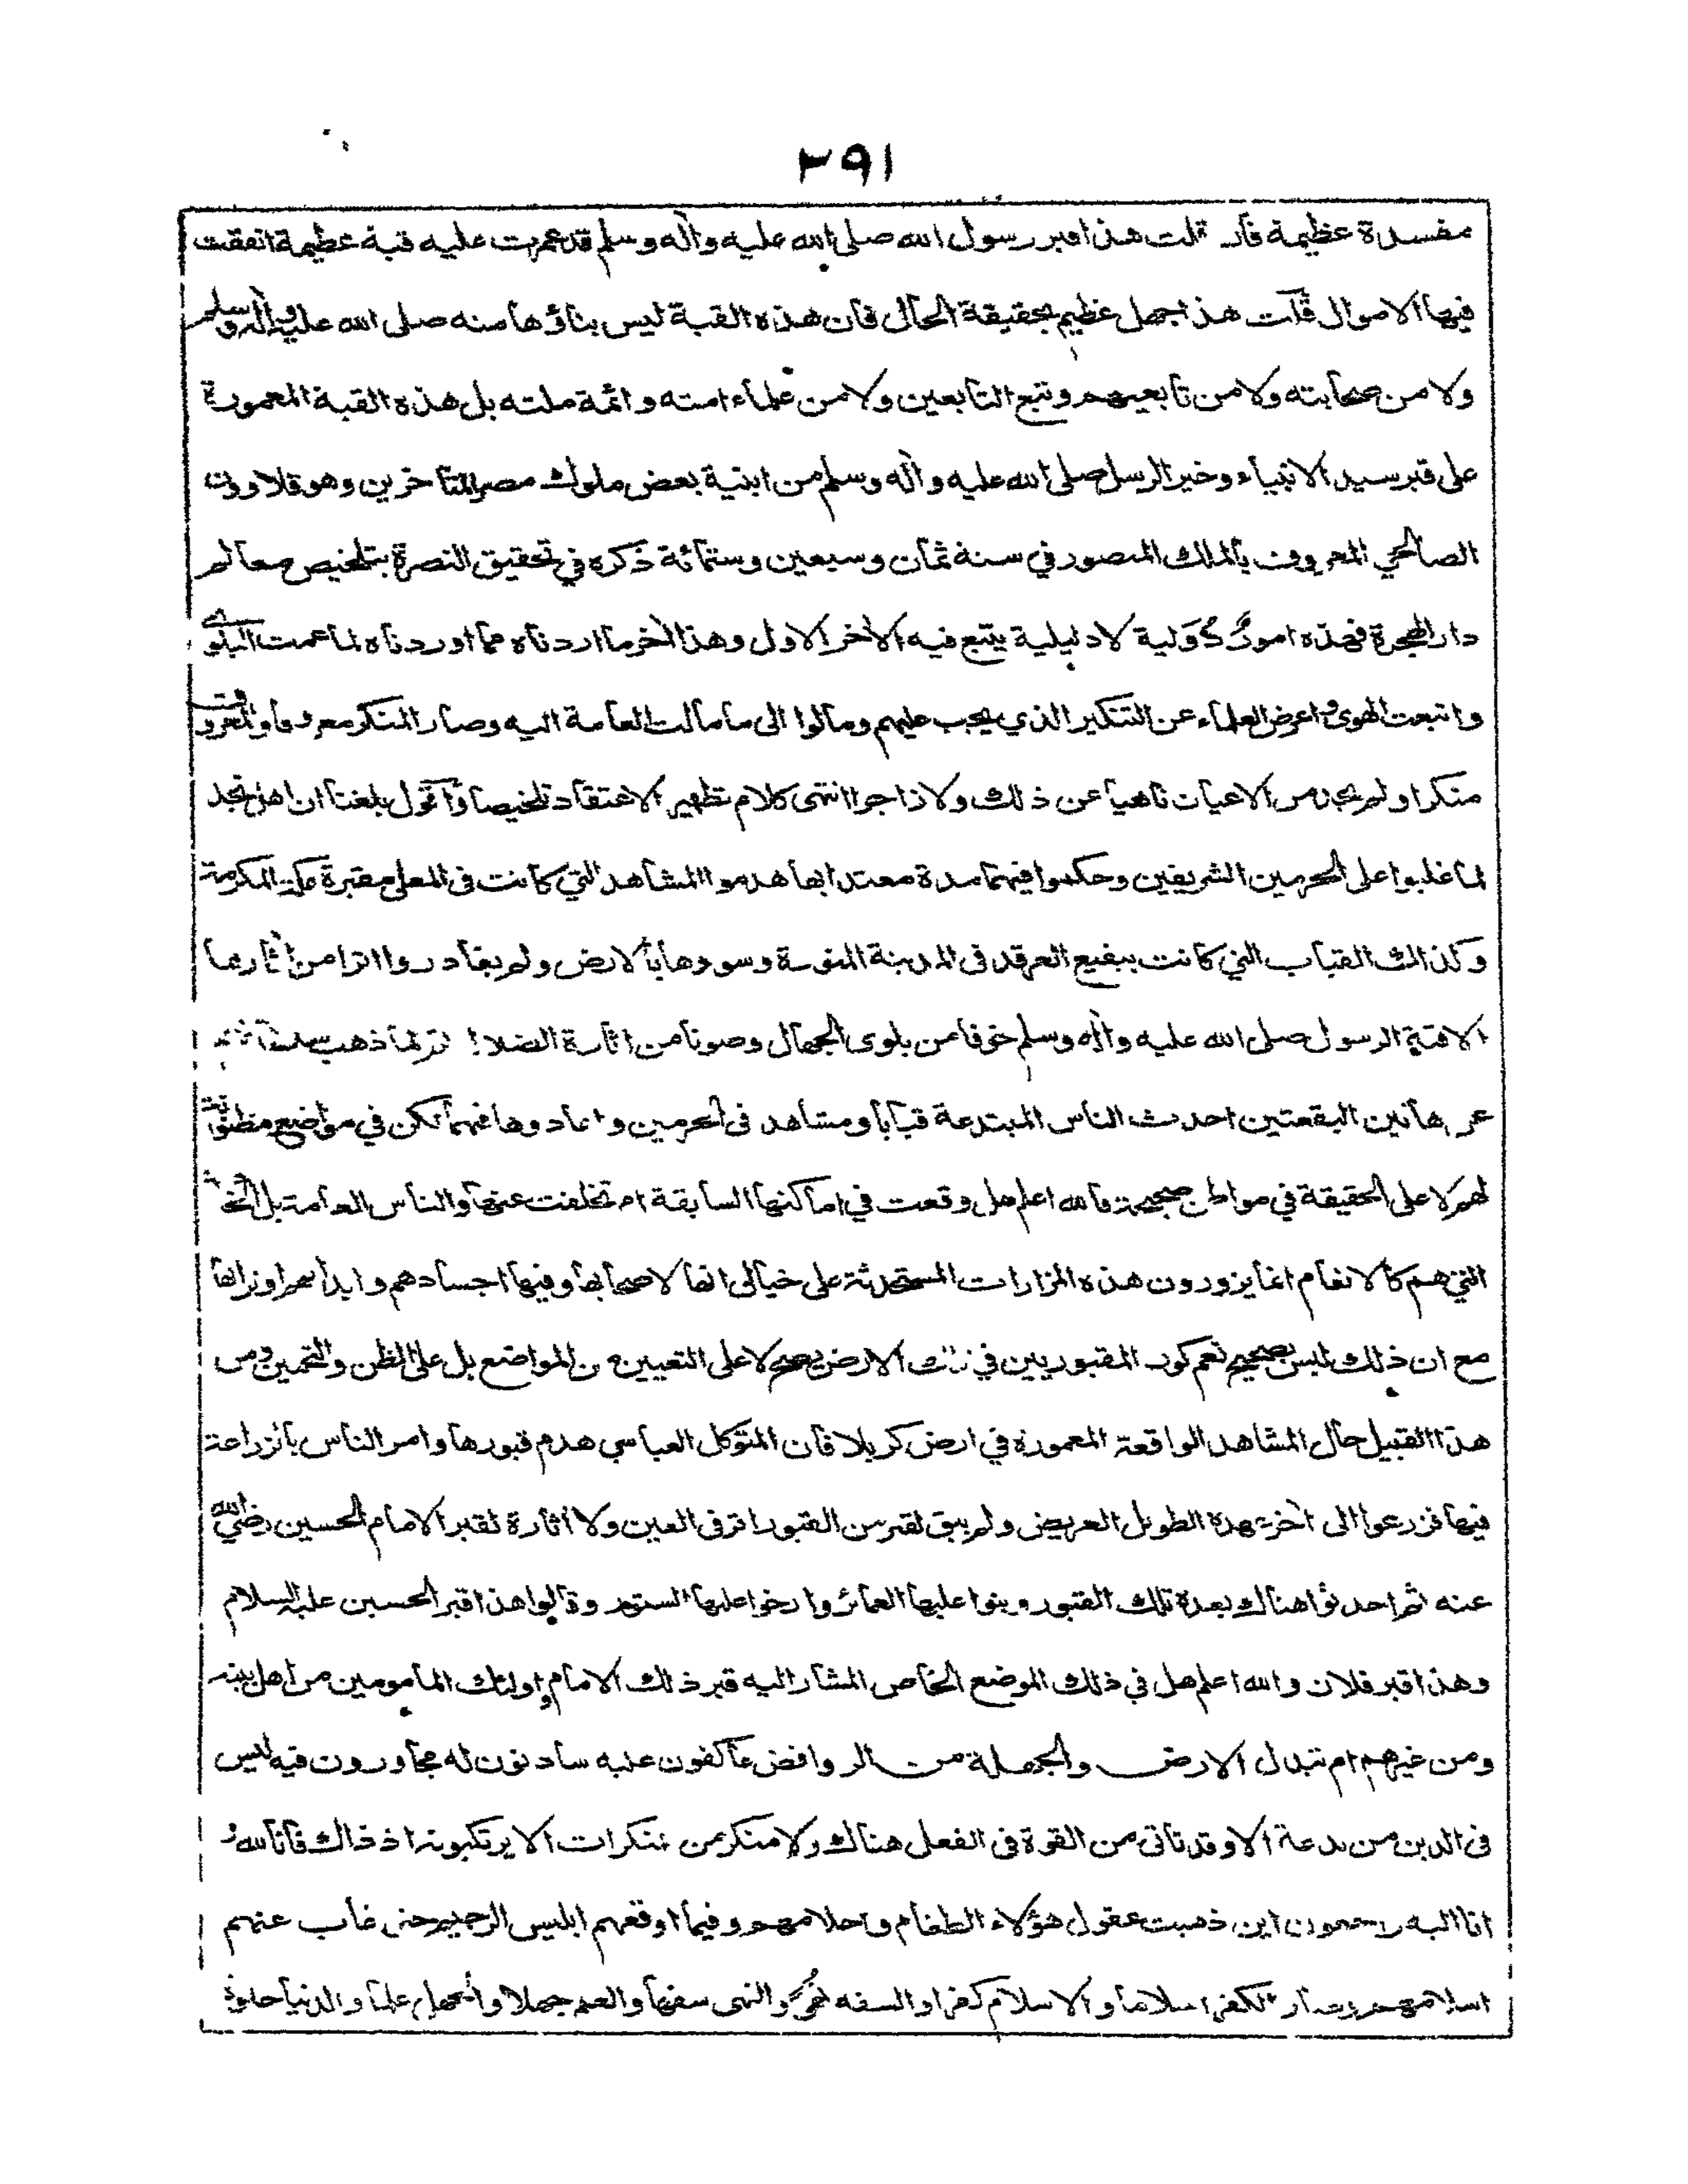 ٢٩١
مفسدة عظيمة فان قلت هذا قبر رسول الله صلى الله عليه واله وسلم قد عمرت عليه قبة عظيمة انفقت
فيها الاموال قلت هذا جهل عظيم بحقيقة الحال فان هذه القبة ليس بناؤها منه صلى الله عليه واله وسلم
ولا من صحابته ولا من تابعيهم وتبع التابعين ولا من علماء امته وائمة ملته بل هذه القبة المعمورة
على قبر سيد الانبياء وخير الرسل صلى الله عليه واله وسلم من ابنية بعض ملوك مصر المتاخرين وهو قلاوون
الصالحي المعروف بالملك المنصور في سنة ثمان وسبعين وستمائة ذكره في تحقيق النصرة بتلخيص معالم
دار الهجرة فهذه امور دولية لا دليلية يتبع فيه الاخر الاول وهذا اخر ما اردناه مما اوردناه لما عمت البلوى
واتبعت الهوى واعرض العلماء عن التنكير الذي يجب عليهم ومالوا الى ما مالت العامة اليه وصار المنكر معروفا والمعروف
منكرا ولم نجد من الاعيان ناهيا عن ذلك ولا زاجرا انتهى كلام تطهير الاعتقاد تلخيصا واقول بلغنا ان اهل نجد
لما غلبوا على الحرمين الشريفين وحكموا فيهما مدة معتدا بها هدموا المشاهد التي كانت في المعلى مقبرة مكة المكرمة
وكذلك القباب التي كانت ببقيع الغرقد في المدينة المنورة وسووها بالارض ولم يغادروا اثرا من اثارها
الا قبة الرسول صلى الله عليه واله وسلم خوفا من بلوى الجهال وصونا من اثارة الضلال ثم لما ذهب
عن هاتين البقعتين احدث الناس المبتدعة قبابا ومشاهد في الحرمين واعادوها فيهما لكن في مواضع مظنونة
لهم لا على الحقيقة في مواطن صحيحة فالله اعلم هل وقعت في اماكنها السابقة ام تخلفت عنها والناس العامة بل
التي هم كالانعام انما يزورون هذه المزارات المستحدثة على خيال انها لاصحابها وفيها اجسادهم وابدانهم
مع ان ذلك ليس بصحيح نعم كون المقبوريين في تلك الارض يصح لا على التعيين من المواضع بل على الظن والتخمين ومن
هذا القبيل حال المشاهد الواقعة المعمورة في ارض كربلا فان المتوكل العباسي هدم قبورها وامر الناس بالزراعة
فيها فزرعوا الى اخر عهده الطويل العريض ولم يبق لقبر من القبور اثر في العين ولا اثارة لقبر الامام الحسين رضي الله
عنه ثم احدثوا هناك بعده تلك القبور وبنوا عليها العمائر وارخوا عليها الستور وقالوا هذا قبر الحسين عليه السلام
وهذا قبر فلان والله اعلم هل في ذلك الموضع الخاص المشار اليه قبر ذلك الامام واولئك المأمومين من اهل بيته
ومن غيرهم ام تبدل الارض والجهلة من الروافض عاكفون عليه سادنون له مجاورون فيه ليس
في الدين من بدعة الا وقد تاتي من القوة في الفعل هناك ولا منكر من منكرات الا يرتكبونه اذ ذاك فانا لله و
انا اليه راجعون اين ذهبت عقول هؤلاء الطغام واحلامهم وفيما اوقعهم ابليس الرجيم حتى غاب عنهم
اسلامهم وصار الكفر اسلاما والاسلام كفرا والسفه والنهى سفها والعلم جهلا والجهل علما والدنيا حلوة